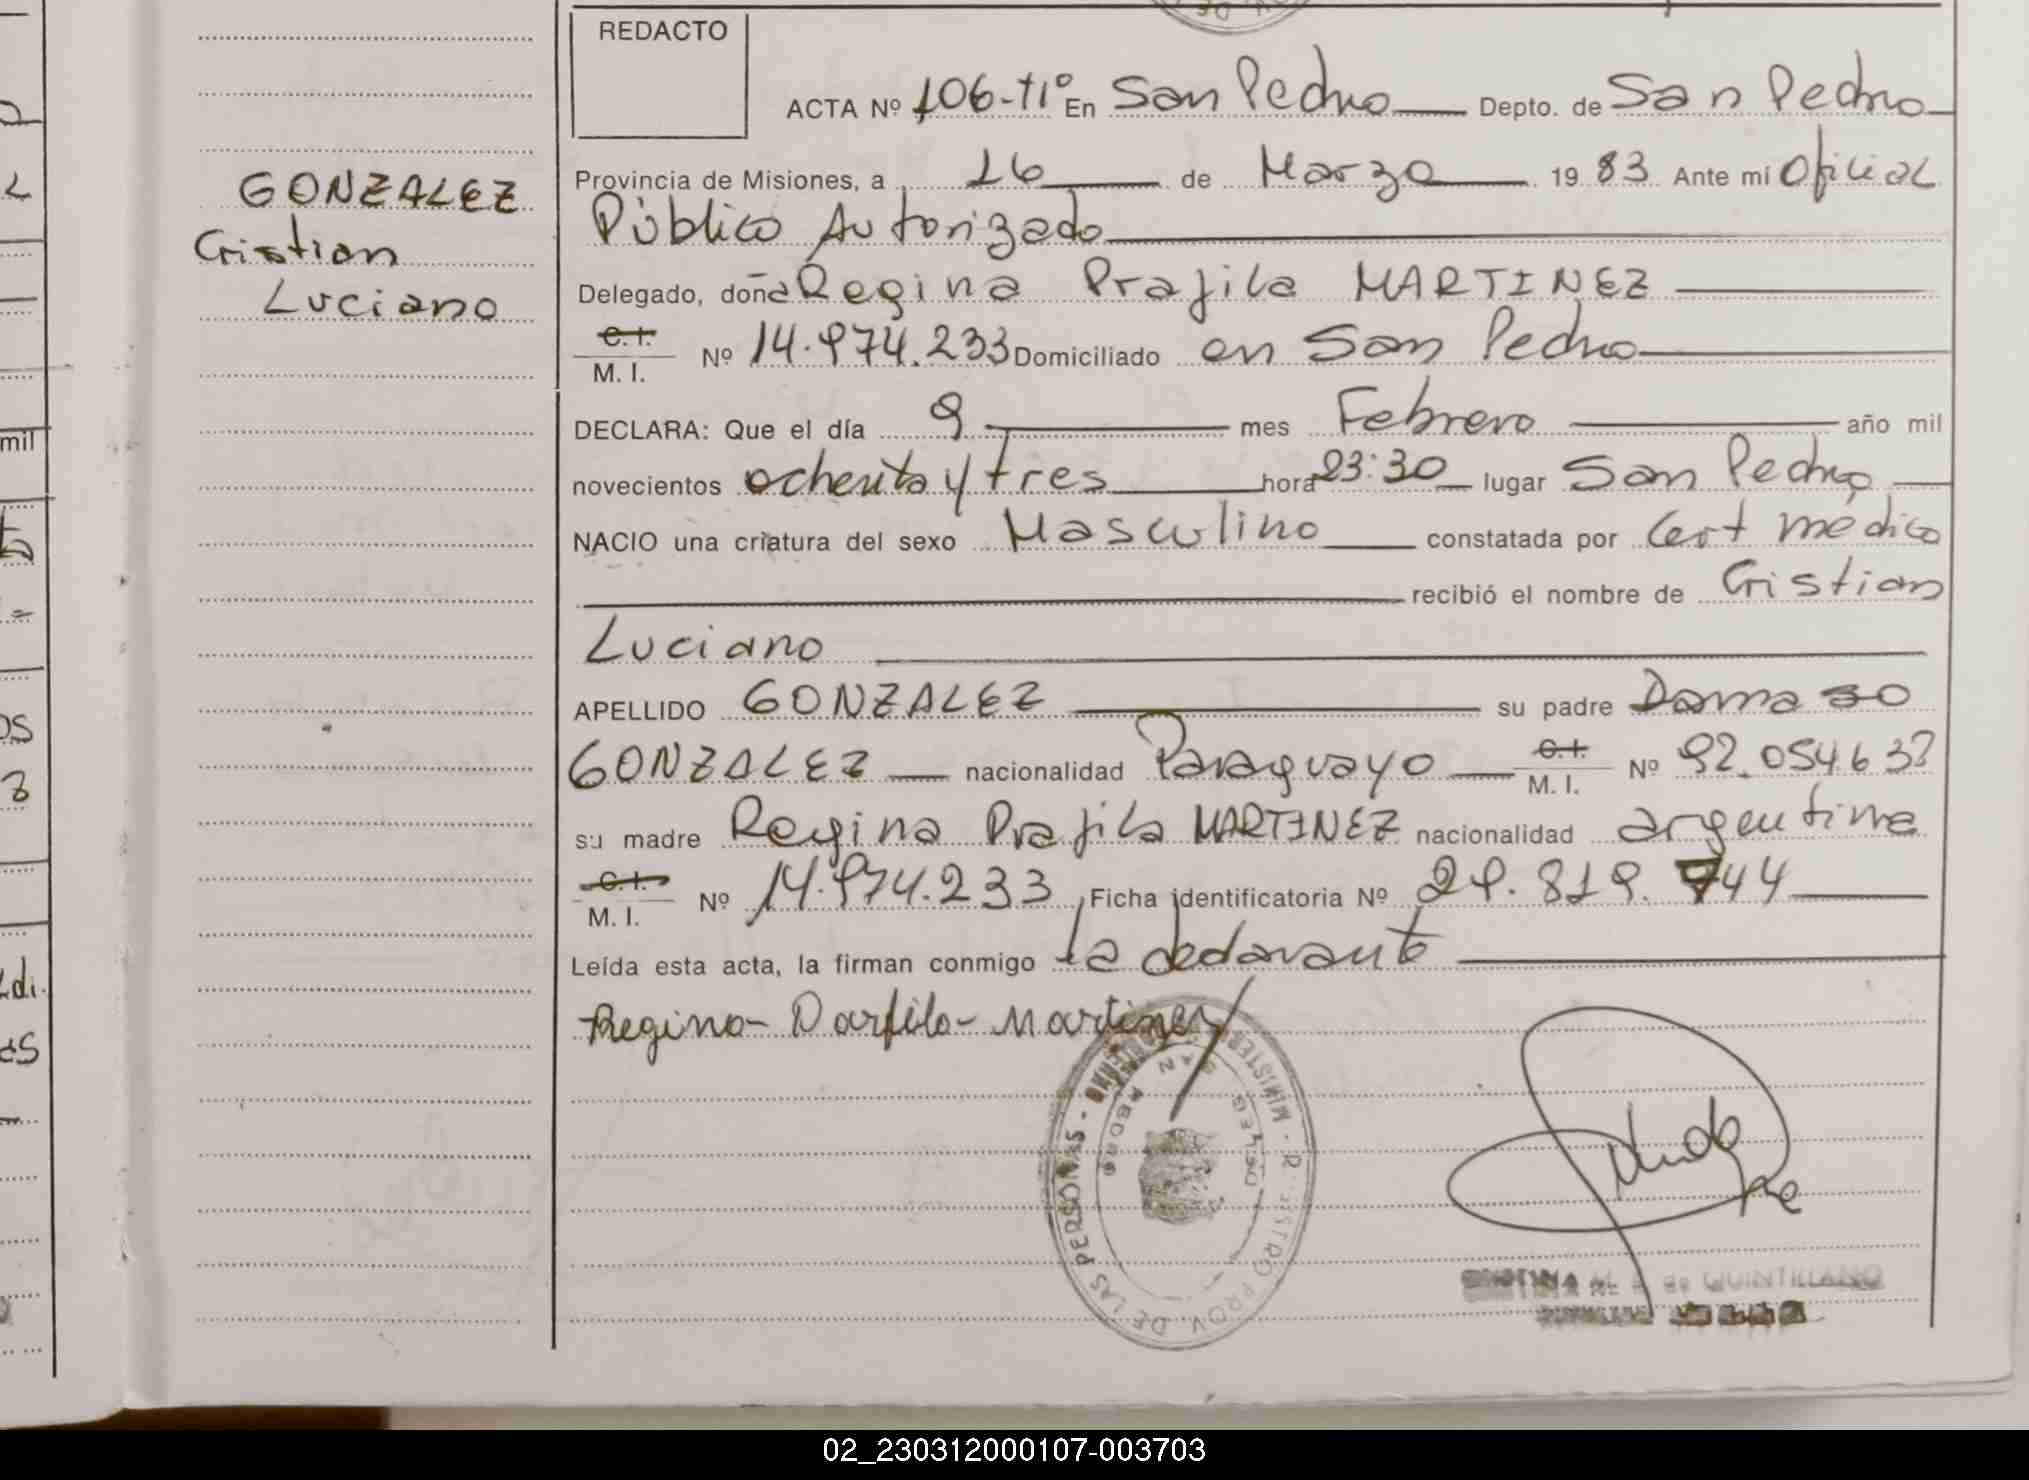 REDACTO
ACTA Nº 106-TIº En San Pedro Depto. de San Pedro
Provincia de Misiones, a 16 de Marzo 1983 Ante mí Oficial
Público Autorizado
Delegado, doña Regina Prajila MARTINEZ
C.I.
M. I. Nº 14.974.233 Domiciliado en San Pedro
DECLARA: Que el día 9 mes Febrero año mil
novecientos ochenta y tres hora 23:30 lugar San Pedro
NACIO una criatura del sexo Masculino constatada por Cert médico
recibió el nombre de Cristian
Luciano
APELLIDO GONZALEZ su padre Damaso
GONZALEZ nacionalidad Paraguayo C.I. M. I. Nº 92.054.637
su madre Regina Prajila MARTINEZ nacionalidad argentina
C.I.
M. I. Nº 14.974.233 Ficha identificatoria Nº 29.819.744
Leída esta acta, la firman conmigo la declarante
Regina Darfila Martinez
GONZALEZ
Cristian
Luciano
mil
SAN PEDRO
DE LAS PERSONAS - MINISTER
PROV. DE
QUINTILLANO
02_230312000107-003703